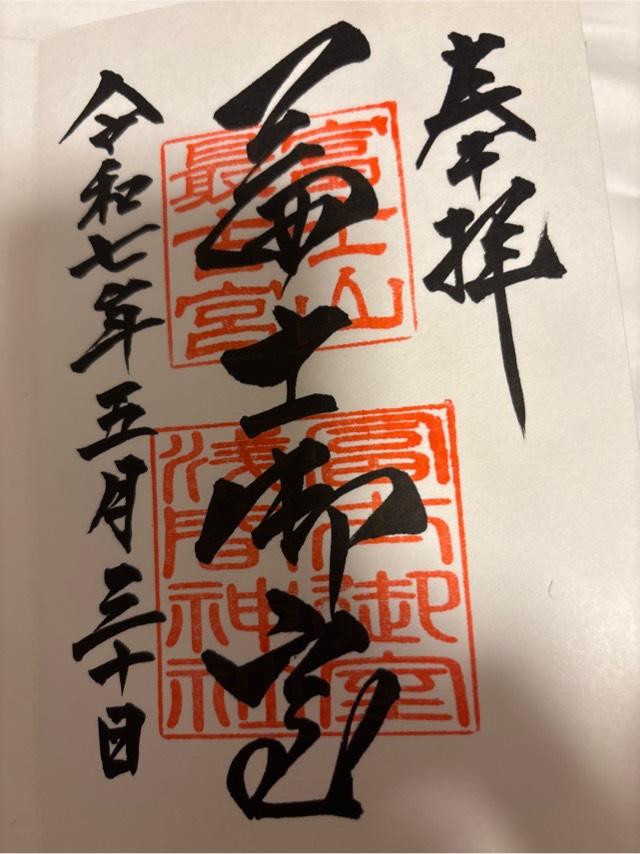 奉拝
冨士御室
富士山
最古宮
冨士御室
浅間神社
令和七年五月三十日